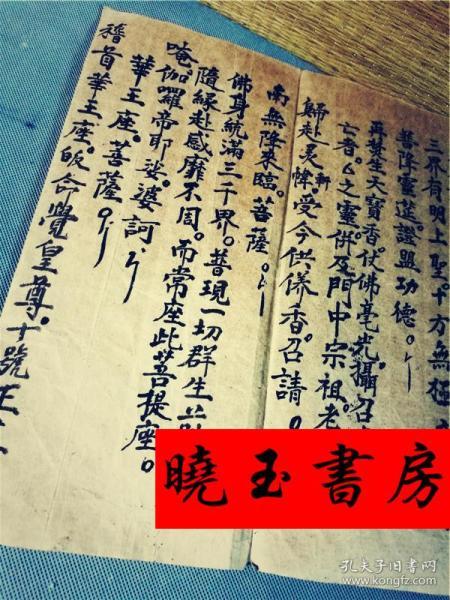 三界有明上聖。十方無極
善降靈莚證盟功德。
再焚生天寶香。伏佛毫光。攝召
亡者。厶之靈。併及門中宗祖老
歸赴灵幃受今供儀香。召請。
軒
南無降來臨。菩薩。
佛身統滿三千界。普現一切群生
隨緣赴感靡不周。而常座此菩提座。
唵。伽羅帝耶娑。婆訶
華王座。菩薩。
稽首華王座。皈命覺皇尊。十號
曉玉書房
孔夫子旧书网
www.kongfz.com